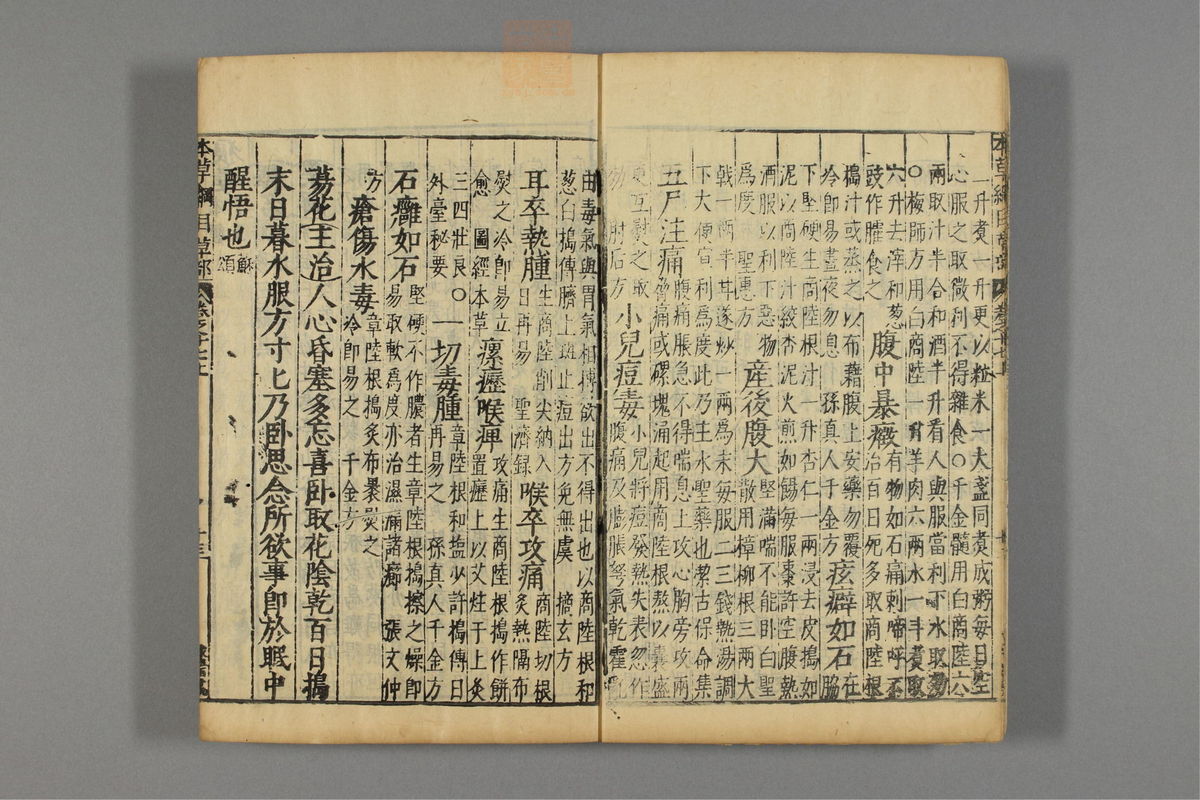 本草綱目草部 卷之十七上
一升煮一升更以粒米一大盞同煮成粥每日空
心服之取微利不得雜食○千金髓用白商陸六
兩取汁半合和酒半升看人與服當利下水取効
○梅師方用白商陸一升羊肉六兩水一斗煮取
六升去滓和葱
豉作臛食之
腹中暴癥
有物如石痛刺啼呼不
治百日死多取商陸根
搗汁或蒸之以布藉腹上安藥勿覆
冷即易晝夜勿息 孫真人千金方
痃癖如石
在
脇
下堅硬生商陸根汁一升杏仁一兩浸去皮搗如
泥以商陸汁絞杏泥火煎如餳每服棗許空腹熱
酒服以利下惡物
為度 聖惠方
産後腹大
堅滿喘不能卧白聖
散用樟柳根三兩大
戟一兩半甘遂炒一兩為末每服二三錢熱湯調
下大便宣利為度此乃主水聖藥也潔古保命集
五尸注痛
腹痛脹急不得喘息上攻心胸旁攻兩
脇痛或磥塊涌起用商陸根熬以囊盛
更互熨之取
効 肘后方
小兒痘毒
小兒將痘發熱失表忽作
腹痛及膨脹弩氣乾霍亂
由毒氣與胃氣相摶欲出不得出也以商陸根和
葱白搗傅臍上斑止痘出方免無虞 摘玄方
耳卒熱腫
生商陸削尖納入
日再易 聖濟錄
喉卒攻痛
商陸切根
炙熱隔布
熨之冷即易立
愈 圖經本草
瘰癧喉痺
攻痛生商陸根搗作餅
置癧上以艾炷于上灸
三四壯良○
外臺秘要
一切毒腫
章陸根和塩少許搗傅日
再易之 孫真人千金方
石癰如石
堅硬不作膿者生章陸根搗擦之燥即
易取軟為度亦治濕漏諸癤 張文仲
方
瘡傷水毒
章陸根搗炙布裹熨之
冷即易之 千金方
蒻花主治人心昏塞多忘喜卧取花陰乾百日搗
末日暮水服方寸匕乃卧思念所欲事即於眠中
醒悟也
蘇
頌
本草綱目草部 卷之十七上